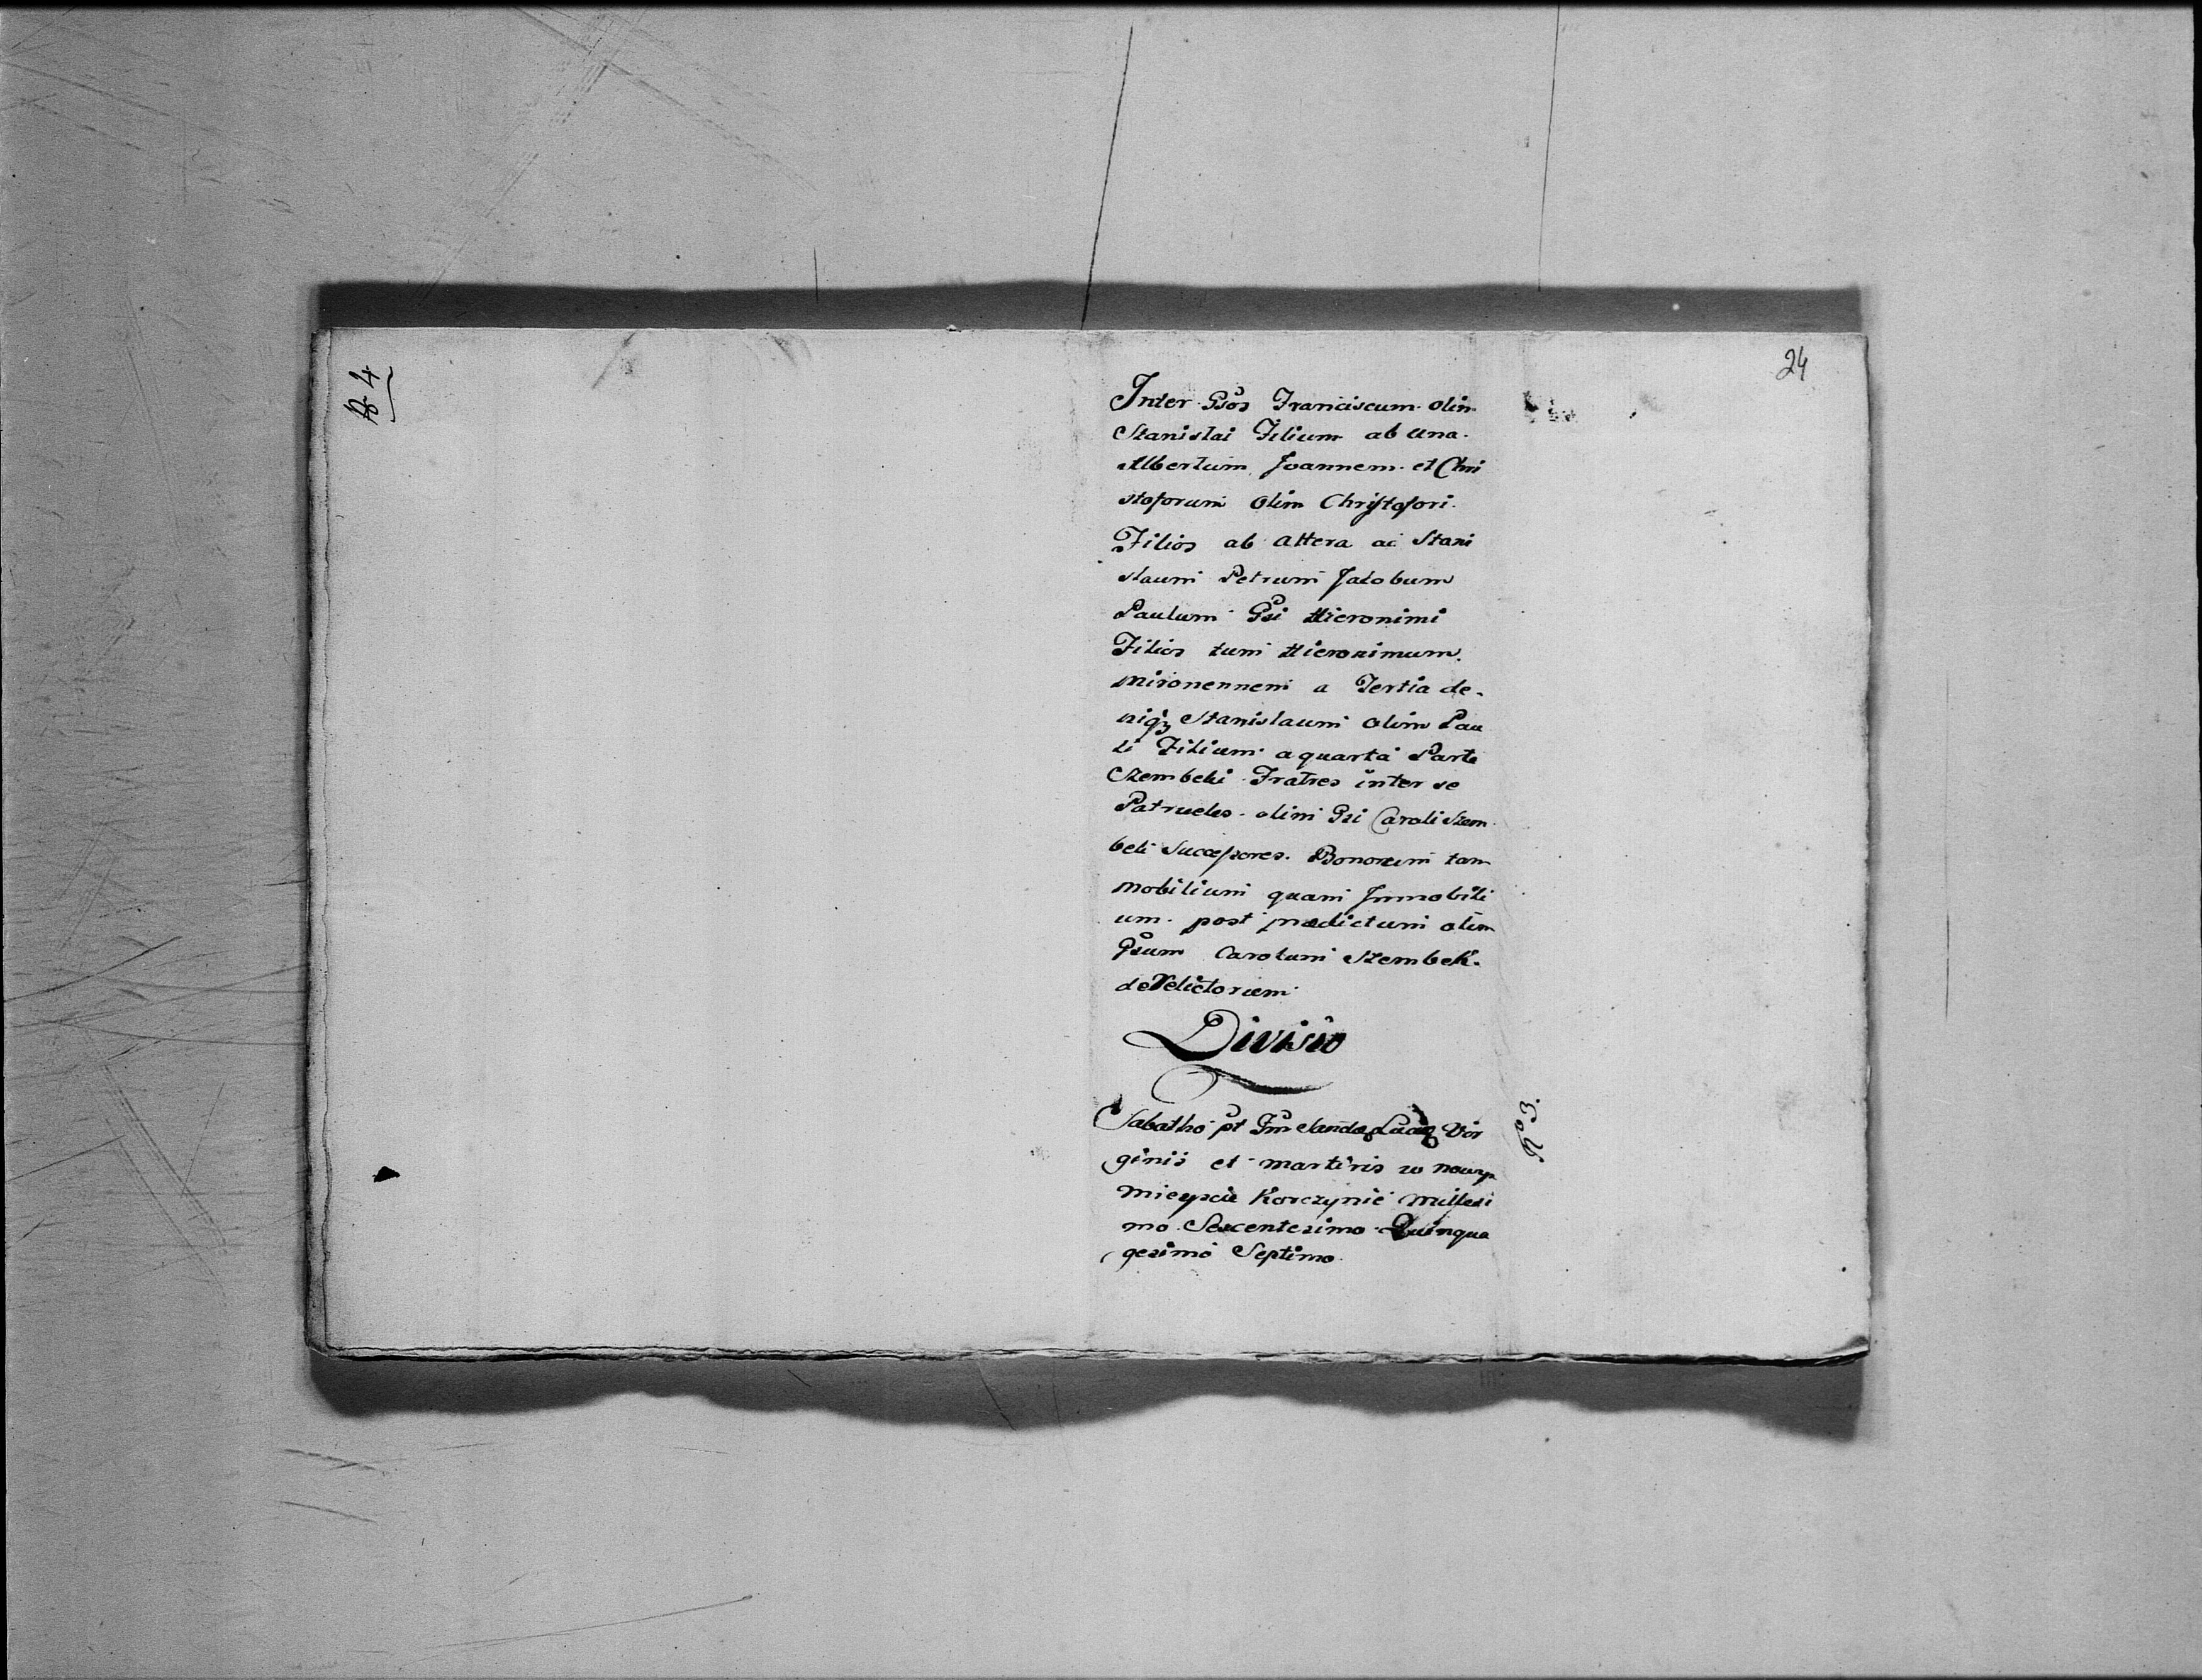 24
№ 4
Inter Gsos Franciscum olim
Stanislai Filium ab una.
Albertum Joannem et Chri
stoforum olim Christofori.
Filios ab altera ac Stani
slaum Petrum Jacobum
Paulum Gsi Hieronimi
Filios tum Hieronimum.
mironennem a Tertia de-
niqz Stanislaum olim Pau
li Filium a quarta Parte
Szembeki Fratres inter se
Patrueles olim Gsi Caroli Szem
beki Successores. Bonorum tam
mobilium quam Immobili
um post praedictum olim
Gsum Carolum Szembek.
deRelictorum
Divisio
Sabatho pt Fm Sanctae Luciae Vir
ginis et martiris w nowym
mieyscie Korczynie Millesi
mo Sexcentesimo Quinqua
gesimo Septimo.
No 3.